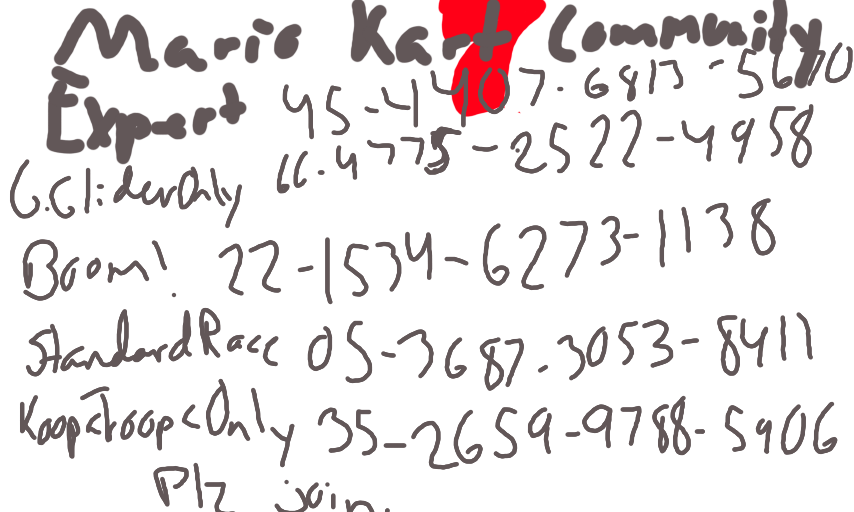 Mario Kart Community
Expert 45-4407-6813-5670
G.GliderOnly 66-4775-2522-4958
Boom! 22-1534-6273-1138
StandardRace 05-3687-3053-8411
KoopaTroopaOnly 35-2659-9788-5906
Plz join.